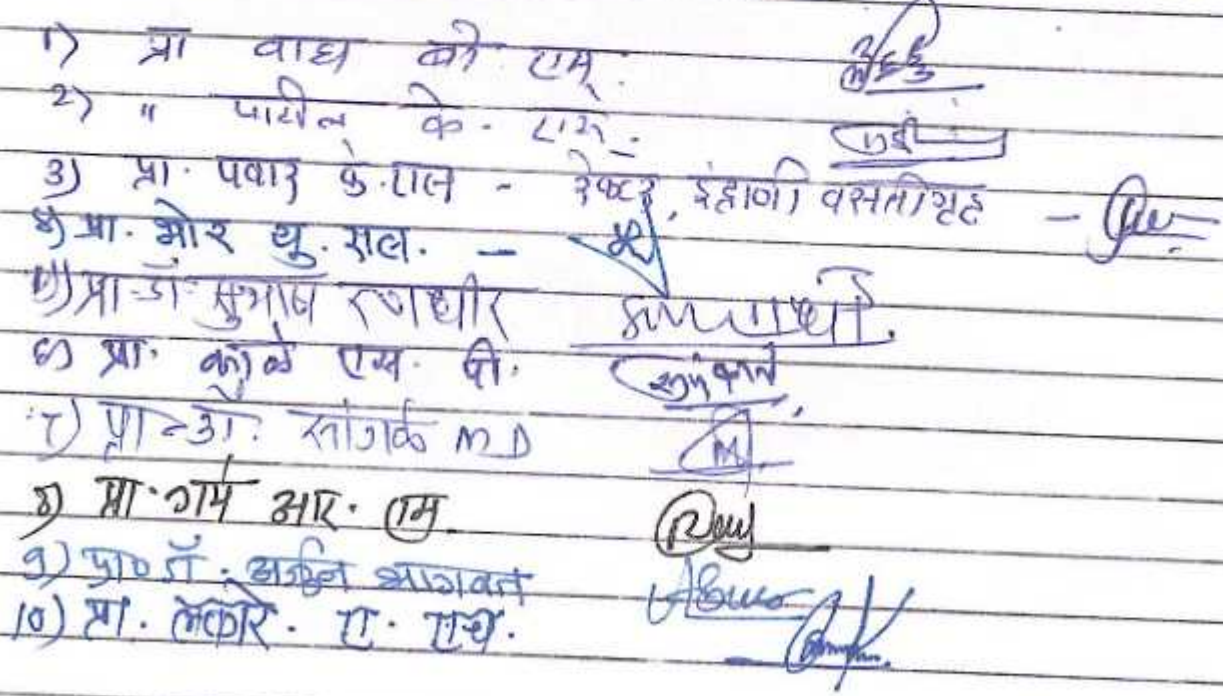 १) प्रा वाघ बी एम.
२) " पाटील के. एस.
३) प्रा. पवार के.एल - रेक्टर, इंद्राणी वसतीगृह -
४) प्रा. मोरे यु. एल. -
५) प्रा. डॉ. सुभाष रणधीर
६) प्रा. काळे एस. पी.
७) प्रा. डॉ. सांगळे M D
८) प्रा. गर्मे आर. एम.
९) प्रा. डॉ. अर्जुन भागवत
१०) प्रा. ए. एच.